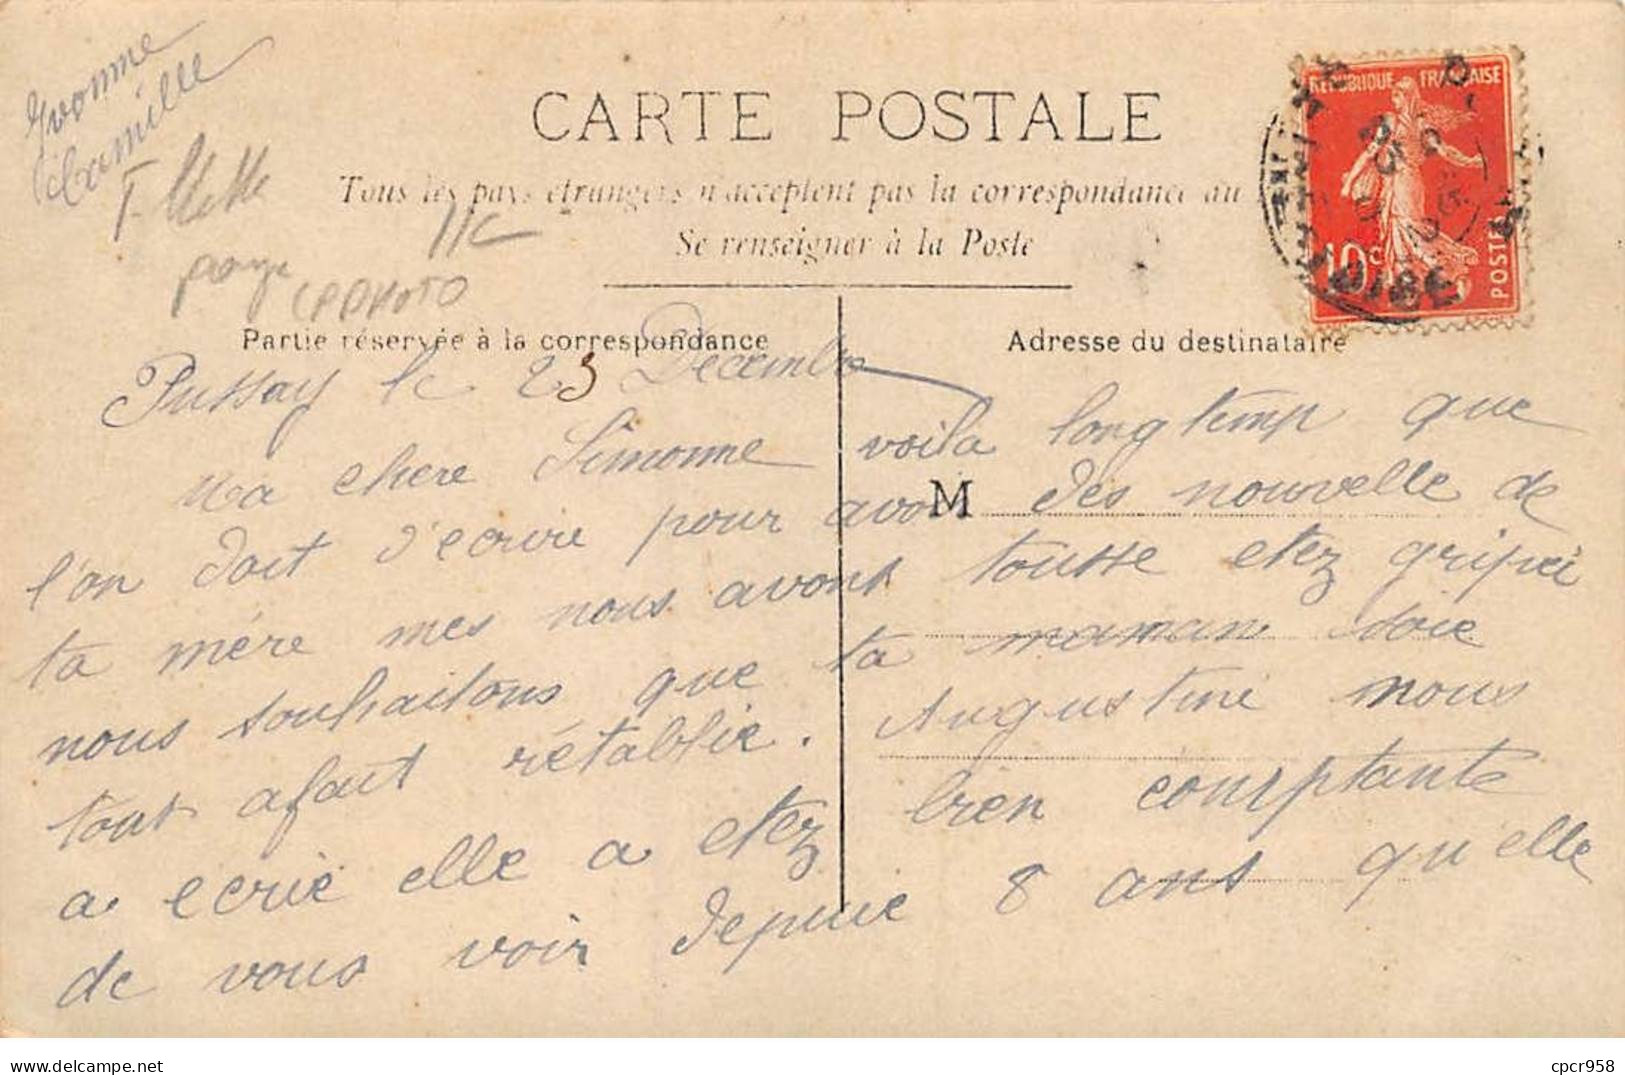 Yvonne
Camille
CARTE POSTALE
Tous les pays étrangers n'acceptent pas la correspondance au
Se renseigner à la Poste
CPPHOTO
Partie réservée à la correspondance
Adresse du destinataire
REPUBLIQUE FRANÇAISE
10c
POSTES
Pussay le 23 Decembre
Ma chere Simonne voila longtemp que
l'on doit d'ecrire pour avoir des nouvelle de
M
ta mére mes nous avont toutte etez gripéi
nous souhaitons que ta maman soie
tout afait rétablie. Augustine nous
a ecrie elle a etez bien comptante
de vous voir depuie 8 ans qu'elle
cpcr958